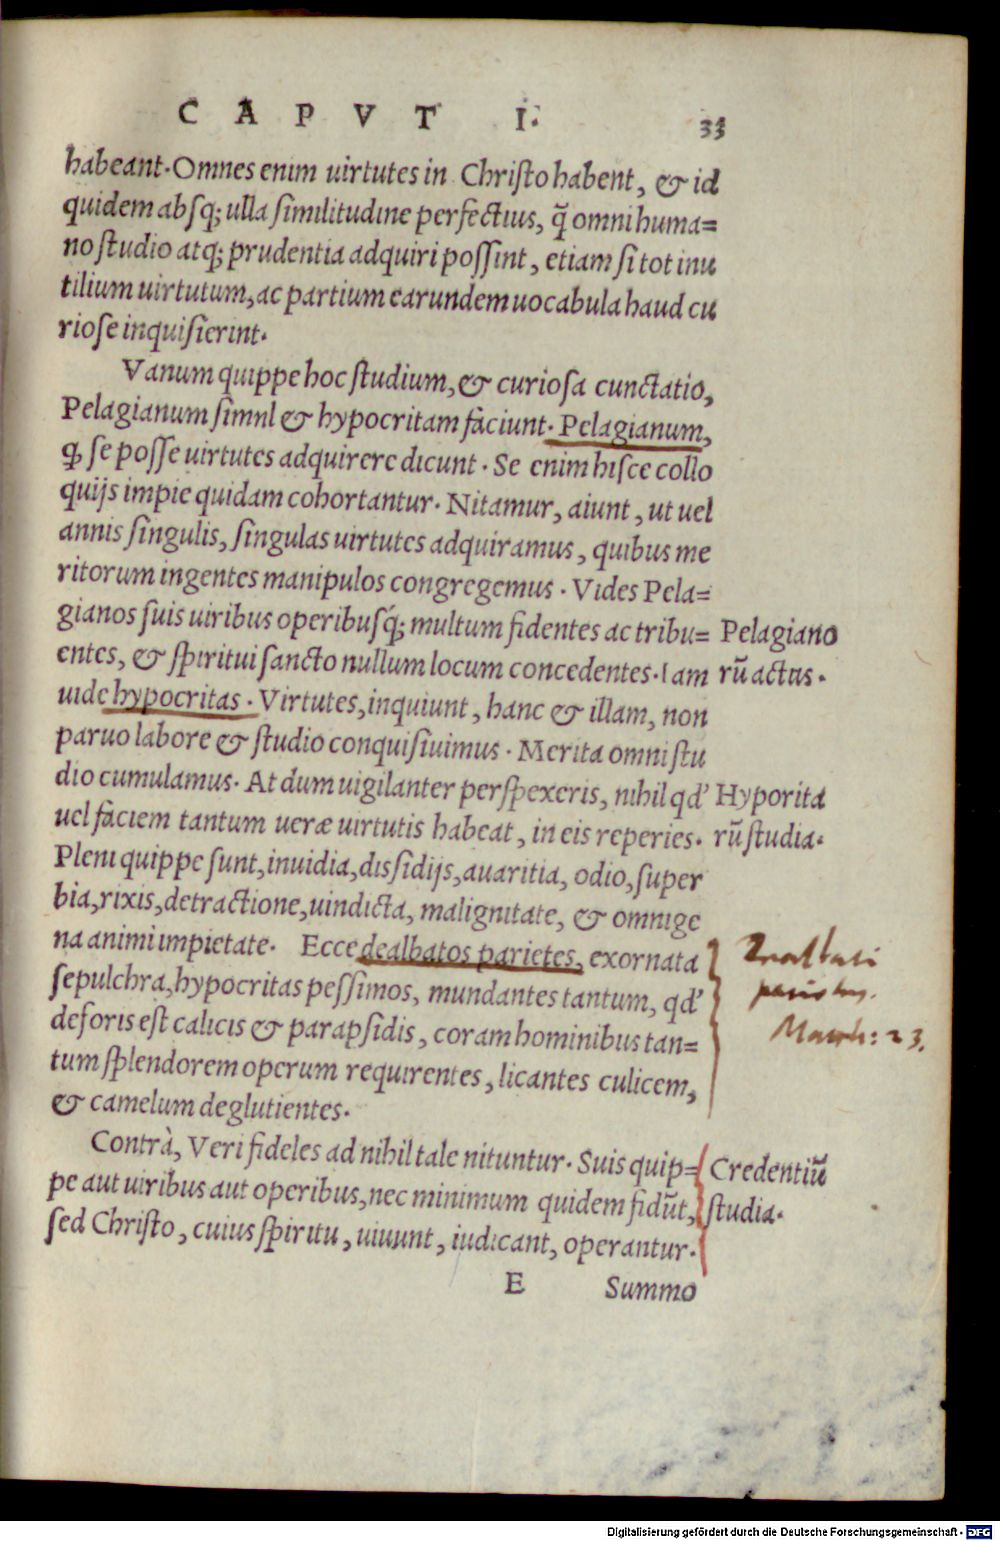 CAPVT I.
33
habeant. Omnes enim uirtutes in Christo habent, & id
quidem absq; ulla similitudine perfectius, q̃ omni huma=
no studio atq; prudentia adquiri possint, etiam si tot inu
tilium uirtutum, ac partium earundem uocabula haud cu
riose inquisierint.
Vanum quippe hoc studium, & curiosa cunctatio,
Pelagianum simnl & hypocritam faciunt. Pelagianum,
ꝗ se posse uirtutes adquirere dicunt. Se enim hisce collo
quijs impie quidam cohortantur. Nitamur, aiunt, ut uel
annis singulis, singulas uirtutes adquiramus, quibus me
ritorum ingentes manipulos congregemus. Vides Pela=
gianos suis uiribus operibusq́; multum fidentes ac tribu=
entes, & spiritui sancto nullum locum concedentes. Iam
uide hypocritas. Virtutes, inquiunt, hanc & illam, non
paruo labore & studio conquisiuimus. Merita omni stu
dio cumulamus. At dum uigilanter perspexeris, nihil qd'
uel faciem tantum ueræ uirtutis habeat, in eis reperies.
Pleni quippe sunt, inuidia, dissidijs, auaritia, odio, super
bia, rixis, detractione, uindicta, malignitate, & omnige
na animi impietate. Ecce dealbatos parietes, exornata
sepulchra, hypocritas pessimos, mundantes tantum, qd'
deforis est calicis & parapsidis, coram hominibus tan=
tum splendorem operum requirentes, licantes culicem,
& camelum deglutientes.
Contrà, Veri fideles ad nihil tale nituntur. Suis quip=
pe aut uiribus aut operibus, nec minimum quidem fidūt,
sed Christo, cuius spiritu, uiuunt, iudicant, operantur.
E Summo
Pelagiano
rū actus.
Hyporita
rū studia.
23.
Credentiū
studia.
Digitalisierung gefördert durch die Deutsche Forschungsgemeinschaft - DFG